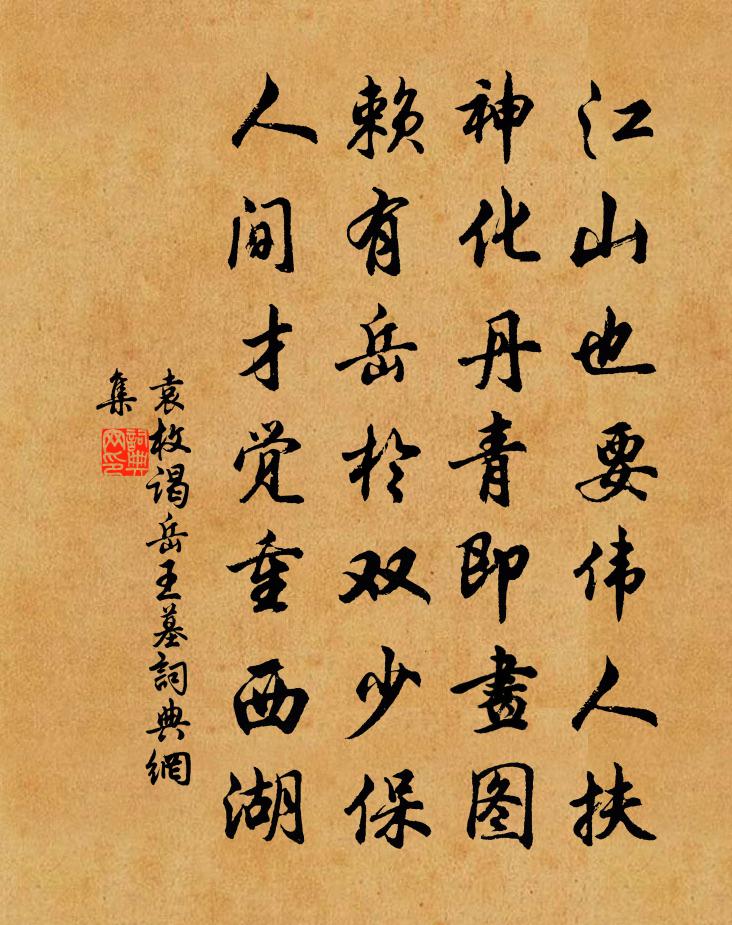 江山也要伟人扶
神化丹青即畫图
赖有岳於双少保
人间才觉重西湖
袁枚谒岳王墓詞典網
集
詞典
网印